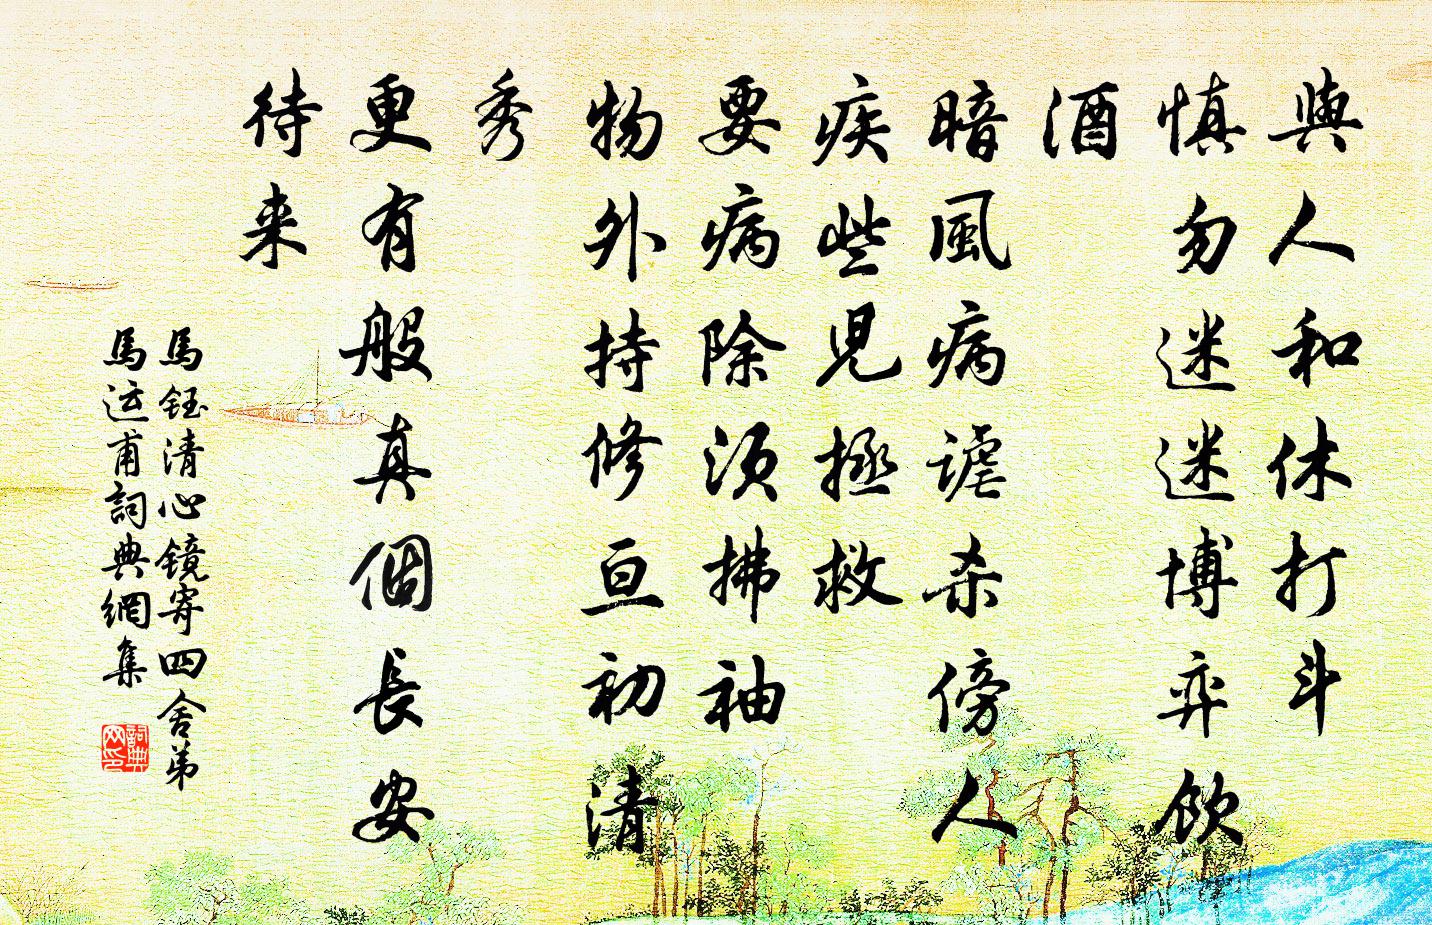 與人和休打斗
慎勿迷迷博弈飲
酒
暗風病謔杀傍人
疾些児拯救
要病除須拂袖
物外持修亘初清
秀
更有般真個長安
待来
馬鈺清心鏡寄四舍弟
馬运甫詞典網集
詞典网印